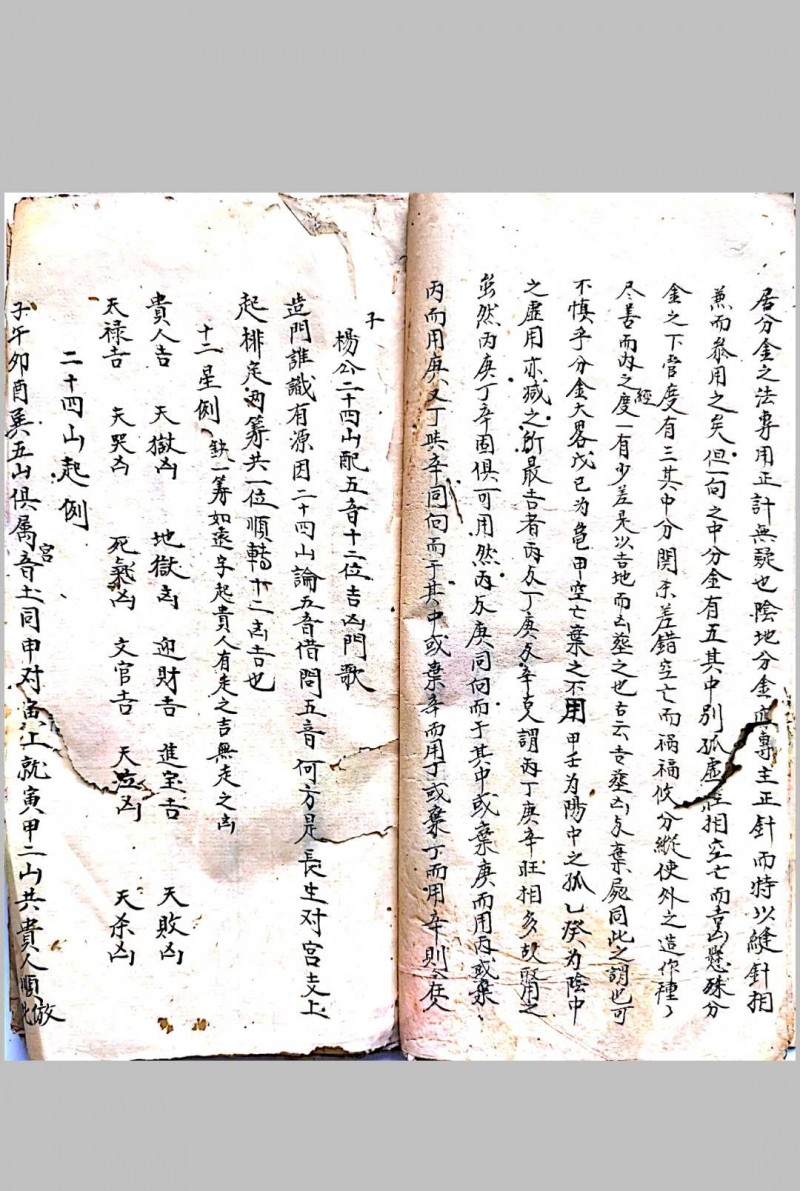 居分金之法專用正計無疑也陰地分金應專主正針而特以縫針相
兼而參用之矣但一向之中分金有五其中別孤虛旺相空亡而吉凶懸殊分
金之下管度有三其中分關系差錯空亡而禍福攸分縱使外之造作種〻
尽善而内之經度一有少差是以吉地而凶塟之也古云吉塟凶与棄屍同此之謂也可
不慎乎分金大畧戊己为龜甲空亡棄之不用甲壬为陽中之孤乚癸为陰中
之虛用亦减之所最吉者丙与丁庚与辛芄謂丙丁庚辛旺相多故取用之
虽然丙庚丁辛固俱可用然丙与庚同向而于其中或棄庚而用丙或棄〻
丙而用庚又丁與辛同向而于其中或棄辛而用丁或棄丁而用辛則
子
楊公二十四山配五音十二位吉凶門歌
造門誰識有源因二十四山論五音借問五音何方是長生对宮支上
起排定两筹共一位順轉十二凶吉也
十二星例 訣一筹如遠字起貴人有走之吉無走之凶
貴人吉 天獄凶 地獄凶 迎財吉 進宝吉 天敗凶
天禄吉 天哭凶 死氣凶 文官吉 天泣凶 天杀凶
二十四山起例
子午卯酉巽五山俱属宮音土同申对宙上就寅甲二山共貴人順倣此